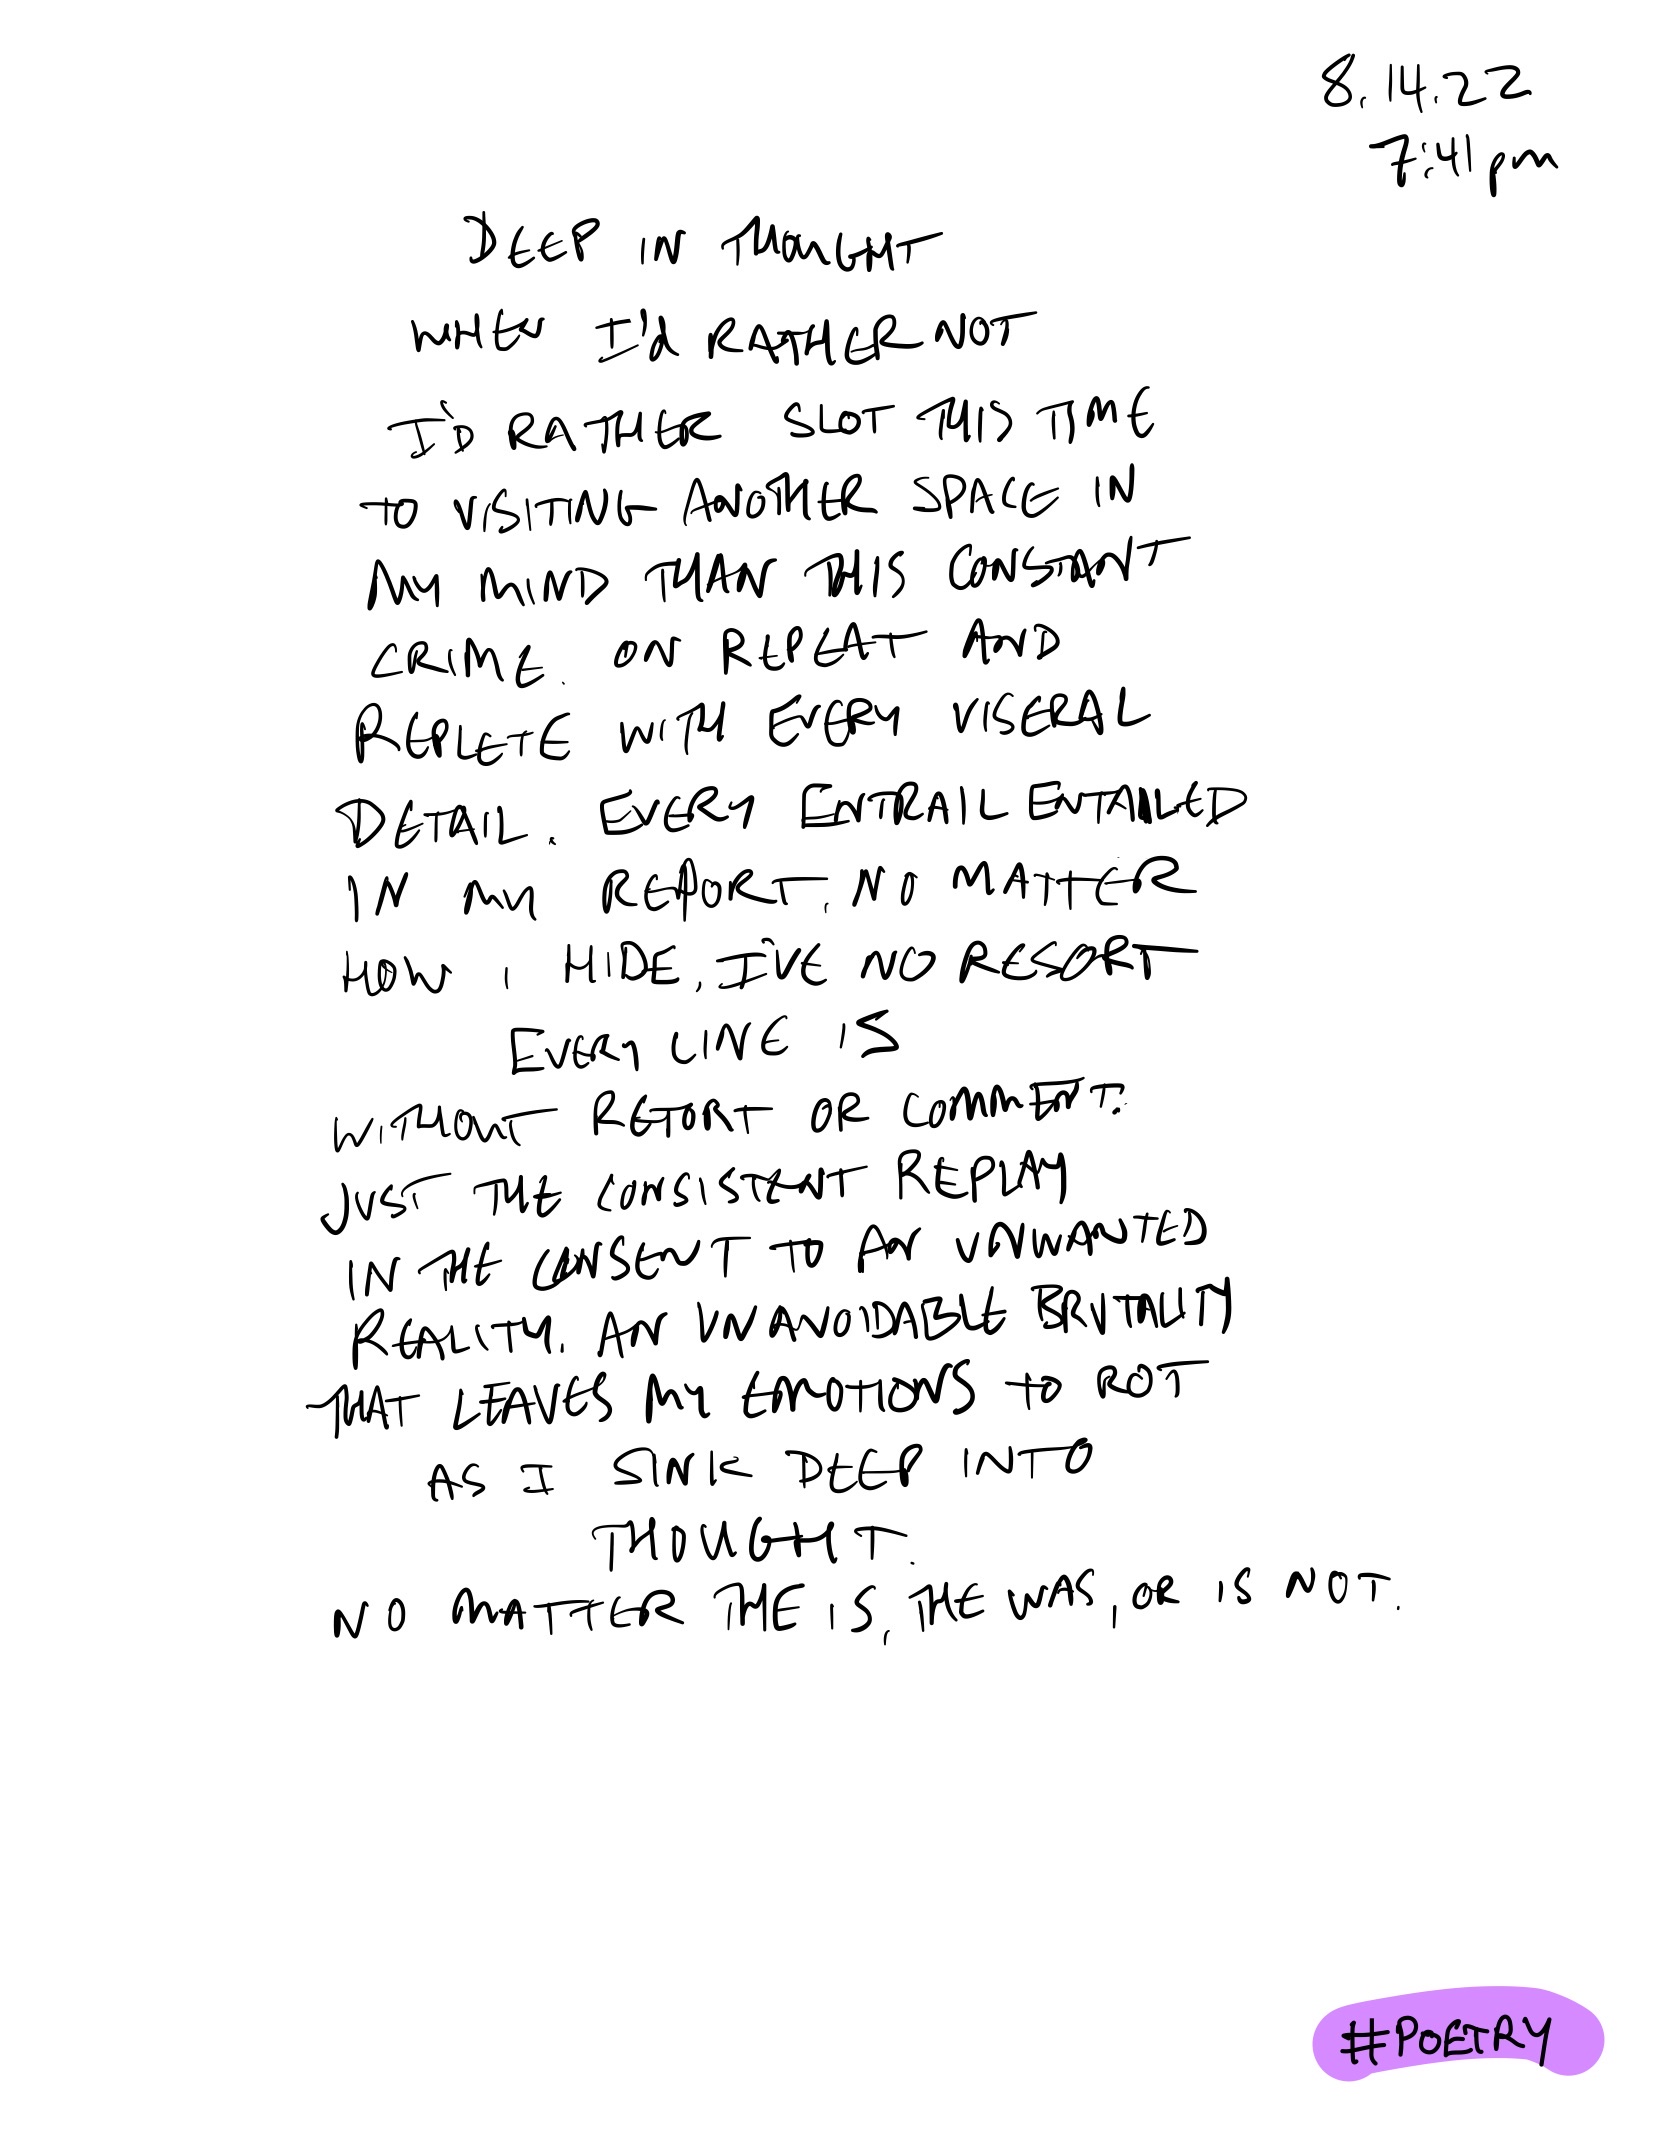 8.14.22
7:41pm
DEEP IN THOUGHT
WHEN I'd RATHER NOT
I'D RATHER SLOT THIS TIME
TO VISITING ANOTHER SPACE IN
MY MIND THAN THIS CONSTANT
CRIME. ON REPEAT AND
REPLETE WITH EVERY VISERAL
DETAIL. EVERY ENTRAIL ENTAILED
IN MY REPORT. NO MATTER
HOW I HIDE, I'VE NO RESORT
EVERY LINE IS
WITHOUT RETORT OR COMMENT.
JUST THE CONSISTENT REPLAY
IN THE CONSENT TO AN UNWANTED
REALITY. AN UNAVOIDABLE BRUTALITY
THAT LEAVES MY EMOTIONS TO ROT
AS I SINK DEEP INTO
THOUGHT.
NO MATTER THE IS, THE WAS, OR IS NOT.
#POETRY